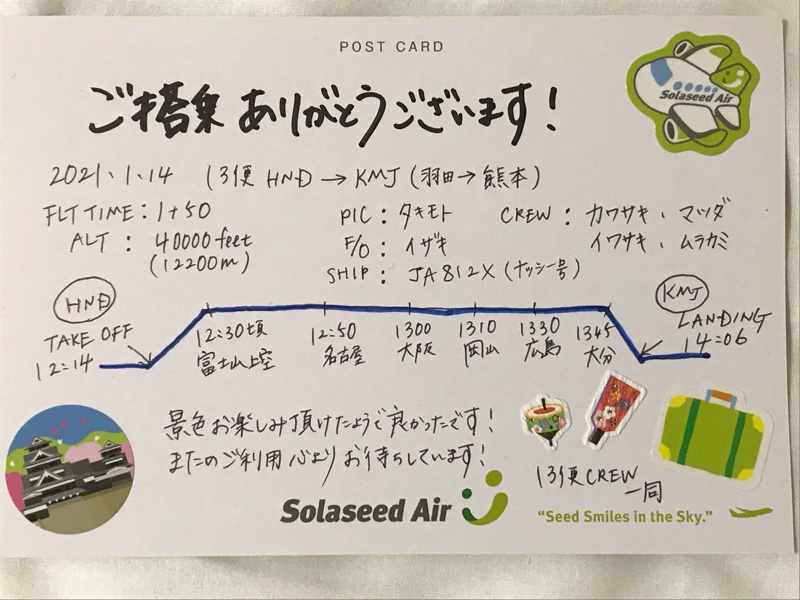 POST CARD
ご搭乗 ありがとうございます!
Solaseed Air
2021.1.14 13便 HND → KMJ (羽田→熊本)
FLT TIME : 1+50 PIC : タキモト CREW : カワサキ、マツダ
ALT : 40000 feet F/O : イザキ イワサキ、ムラカミ
(12200m) SHIP : JA812X (ナッシー号)
HND KMJ
TAKE OFF 12:14
12:30頃 富士山上空
12:50 名古屋
1300 大阪
1310 岡山
1330 広島
1345 大分
LANDING 14:06
景色お楽しみ頂けたようで良かったです!
またのご利用心よりお待ちしています!
13便CREW
一同
Solaseed Air
“Seed Smiles in the Sky.”